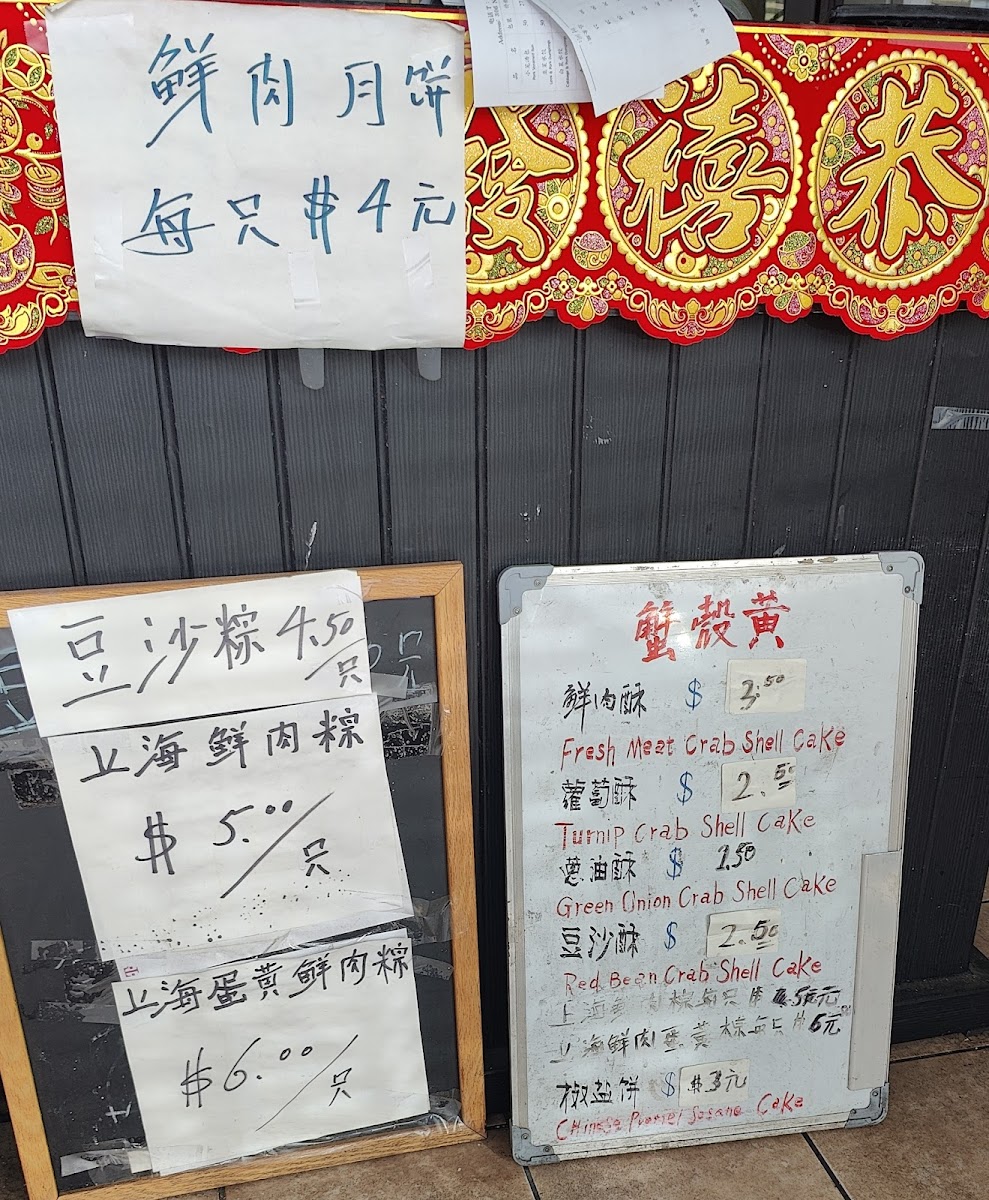 鲜肉月饼
每只$4元
發禧恭
豆沙粽 4.50/只
上海鲜肉粽
$5.00/只
上海蛋黄鲜肉粽
$6.00/只
蟹殼黃
鲜肉酥 $ 3.50
Fresh Meat Crab Shell Cake
蘿蔔酥 $ 2.50
Turnip Crab Shell Cake
蔥油酥 $ 2.50
Green Onion Crab Shell Cake
豆沙酥 $ 2.50
Red Bean Crab Shell Cake
上海 肉粽每只 5元
上海鲜肉蛋黄粽每只 6元
椒盐饼 $ $3元
Chinese Cake